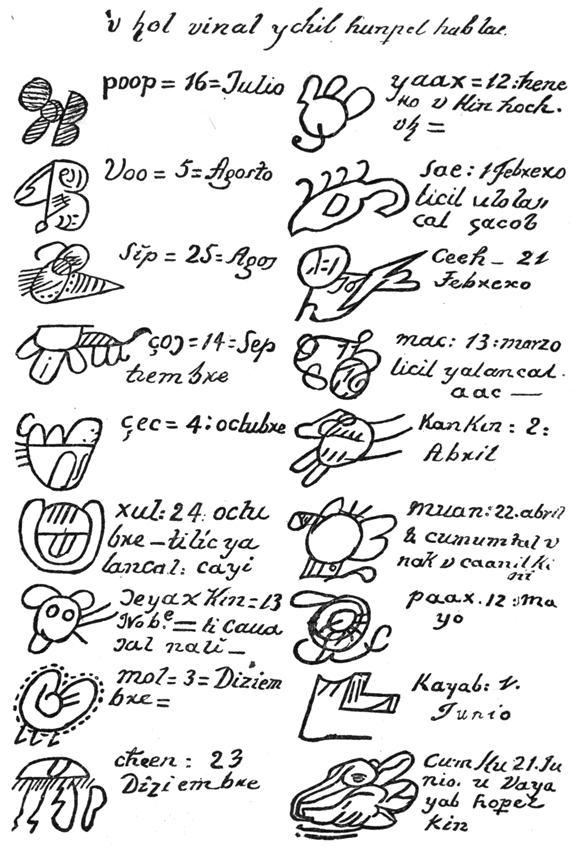 v hol vinal ychil hunpel hab lae.
poop = 16 = Julio
Voo = 5 = Agosto
Sip = 25 = Agos
çoɔ = 14 = Sep
tiembre
çec = 4: octubre
xul: 24. octu
bre_tilic ya
lancal: cayi
Ɔeyax Kin = 13
Nob.e = ti caua
ɔal nali_
mol = 3 = Diziem
bre =
cheen: 23
Diziembre
yaax = 12: hene
ro v kin hoch.
uɔ =
Sac: 1 Febrero
licil ulolan
cal çacob
Ceeh_ 21
Febrero
mac: 13: marzo
licil yalancal.
aac_
KanKin: 2:
Abril
muan: 22. abril
& cumumtal v
nak v caanil ki
ni
paax. 12: ma
yo
Kayab: 1.
Junio
Cumku 21. Ju
nio. u Vaya
yab hopel
Kin